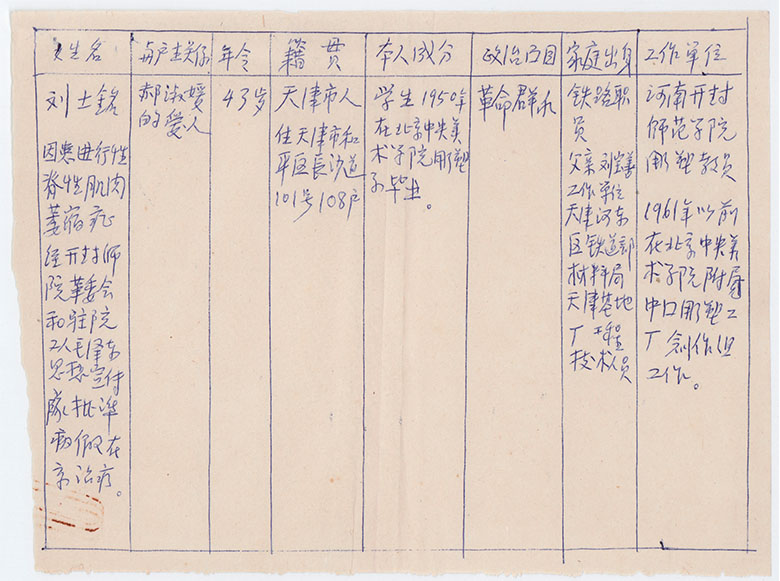 姓名
与户主关系
年令
籍贯
本人成分
政治面目
家庭出身
工作单位
刘士銘
因患进行性
脊性肌肉
萎缩症
经开封师
院革委会
和驻院
工人毛泽东
思想宣传
队批准
病假在
京治疗。
郝淑媛
的爱人
43岁
天津市人
住天津市和
平区長沙道
101号108户
学生1950年
在北京中央美
术学院雕塑
系毕业。
革命群众
铁路职
员
父亲刘宝善
工作单位
天津河东
区铁道部
材料局
天津基地
厂工程
技术人员
河南开封
师范学院
雕塑教员
1961年以前
在北京中央美
术学院附属
中口雕塑工
厂创作组
工作。